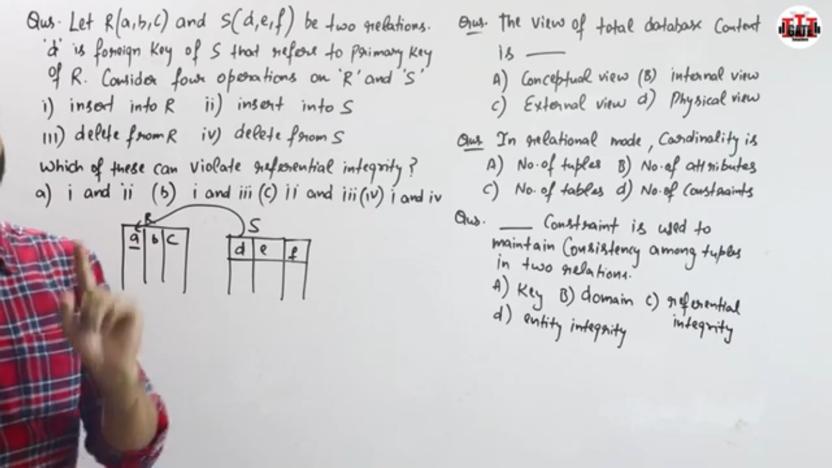 Qus. Let R(a,b,c) and S(d,e,f) be two relations.
'd' is foreign key of S that refers to Primary key
of R. Consider four operations on 'R' and 'S'
i) insert into R ii) insert into S
iii) delete from R iv) delete from S
Which of these can violate referential integrity?
a) i and ii (b) i and iii (c) ii and iii (iv) i and iv
R
a b c
S
d e f
Qus. The view of total database Content
is ____
A) Conceptual view (B) internal view
C) External view d) Physical view
Qus In relational mode, Cardinality is
A) No. of tuples B) No. of attributes
C) No. of tables d) No. of Constraints
Qus. ____ Constraint is used to
maintain Consistency among tuples
in two relations.
A) Key B) domain C) referential
integrity
d) entity integrity
GATE